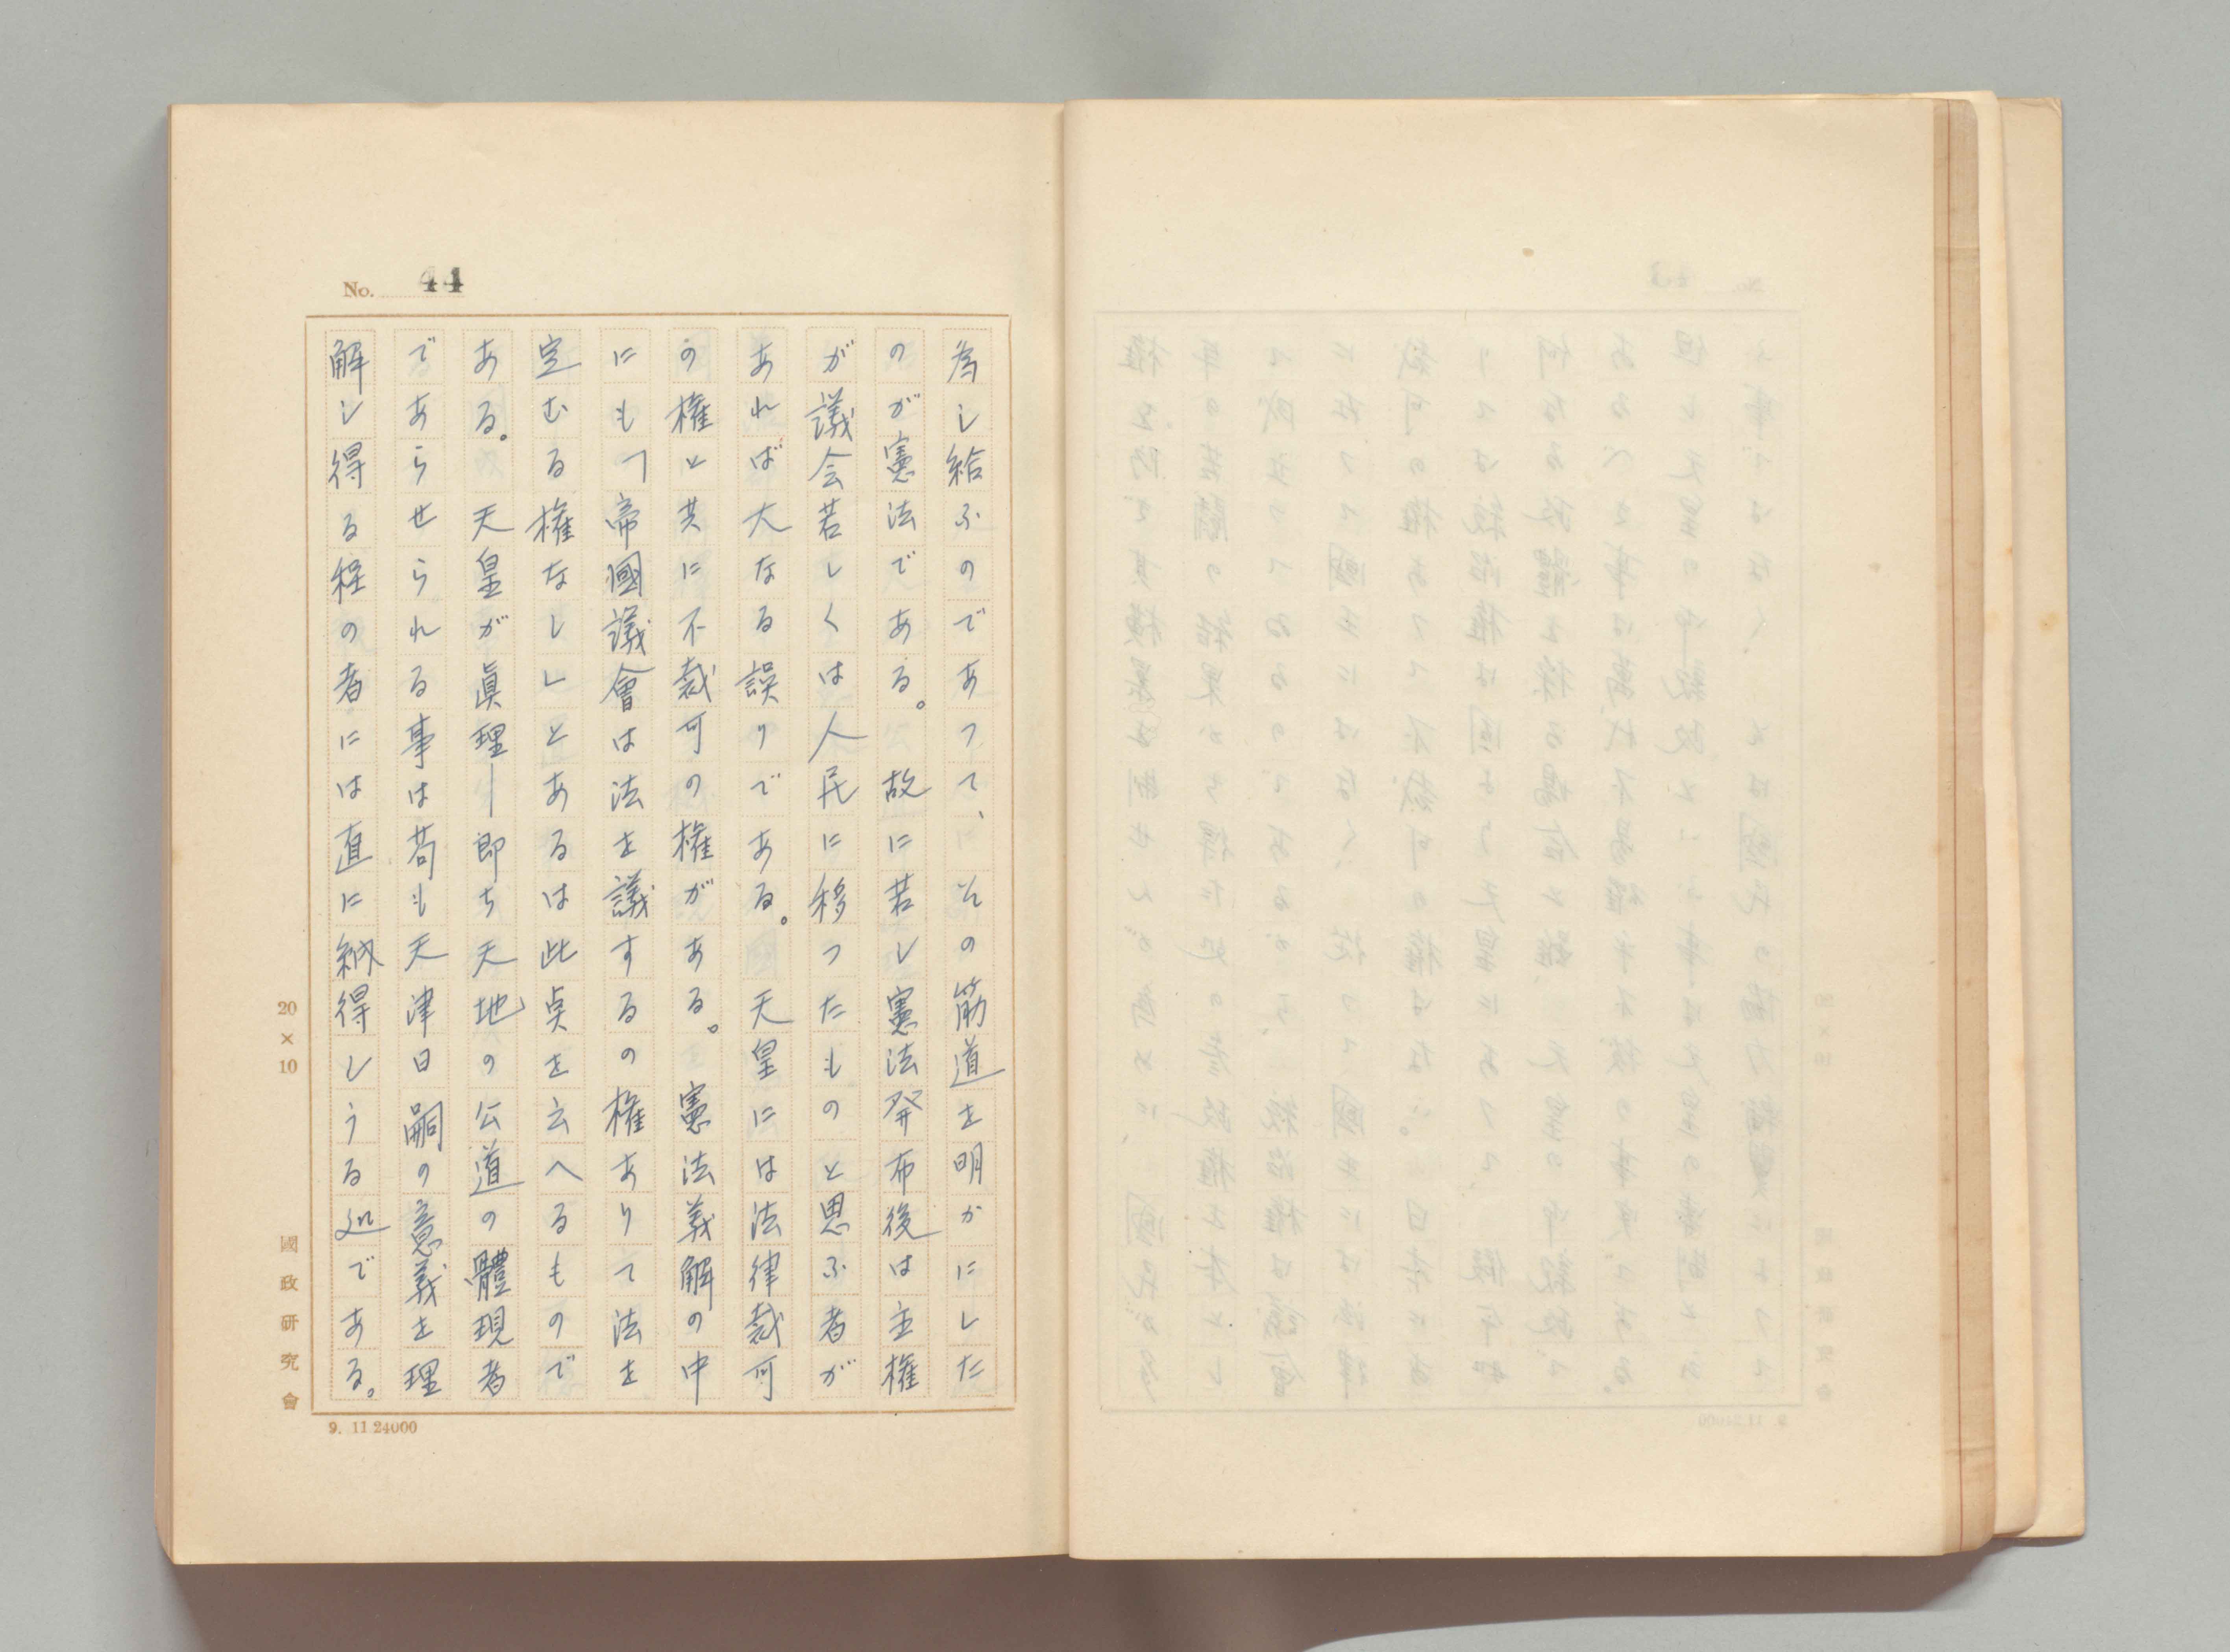 No. 44
為し給ふのであつて、その筋道を明かにした
のが憲法である。故に若し憲法発布後は主権
が議会若しくは人民に移つたものと思ふ者が
あれば大なる誤りである。天皇には法律裁可
の権と共に不裁可の権がある。憲法義解の中
にも「帝國議會は法を議するの権ありて法を
定むる権なし」とあるは此点を云へるもので
ある。天皇が眞理―即ち天地の公道の體現者
であらせられる事は苟も天津日嗣の意義を理
解し得る程の者には直に納得しうる処である。
20×10
國政研究會
9. 11 24000